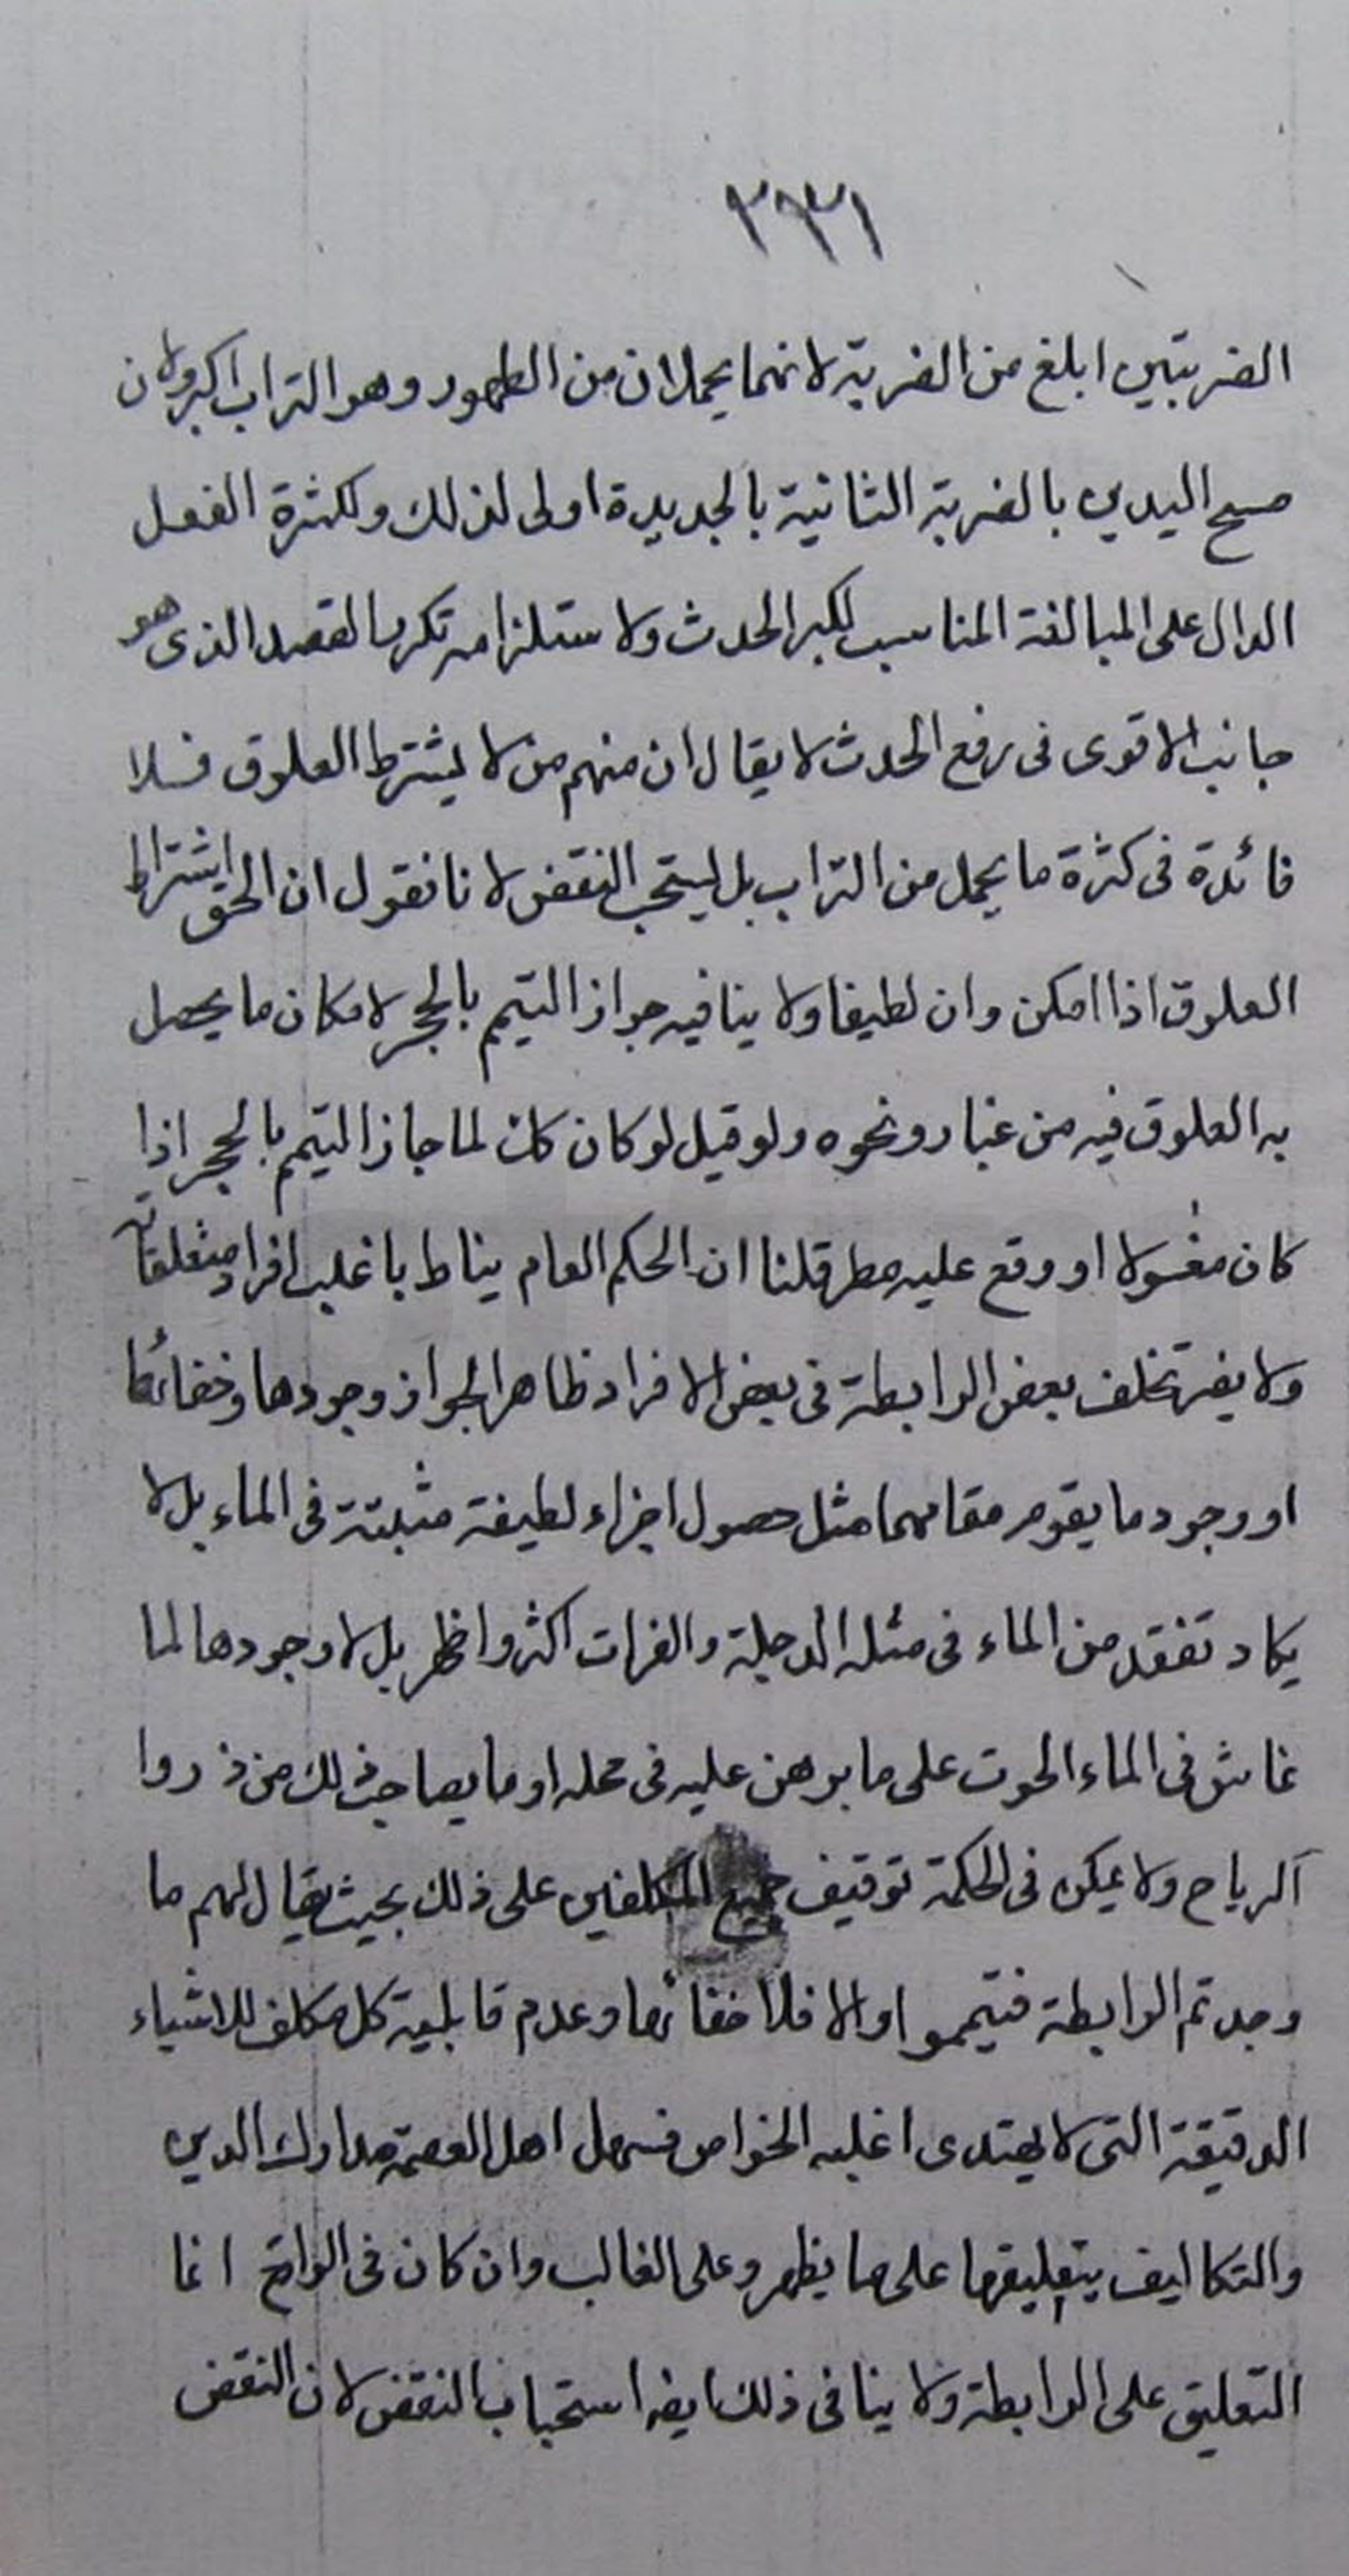 ٣٣١
الضربتين ابلغ من الضربة لانهما يحملان من الطهور وهو التراب اكبر ولان
مسح اليدين بالضربة الثانية بالجديدة اولى لذلك ولكثرة الفعل
الدال على المبالغة المناسب لكبر الحدث ولاستلزامه تكرر القصد الذى هو
جانب الاقوى فى رفع الحدث لا يقال ان منهم من لا يشترط العلوق فلا
فائدة فى كثرة ما يحمل من التراب بل يستحب النفض لانا نقول ان الحق اشتراط
العلوق اذا امكن وان لطيفا ولا ينافيه جواز التيمم بالحجر لامكان ما يحصل
به العلوق فيه من غبار ونحوه ولو قيل لو كان كك لما جاز التيمم بالحجر اذا
كان مغسولا او وقع عليه مطر قلنا ان الحكم العام يناط باغلب افراد متعلقاته
ولا يضر تخلف بعض الرابطة فى بعض الافراد ظاهر الجواز وجودها وخفائها
او وجود ما يقوم مقامهما مثل حصول اجزاء لطيفة منبثة فى الماء بل لا
يكاد تفقد من الماء فى مثل الدجلة والفرات اكثر واظهر بل لا وجودها لما
عاش فى الماء الحوت على ما برهن عليه فى محله او ما يصاحب ذلك من ذروا
الرياح ولا يمكن فى الحكمة توقيف جميع المكلفين على ذلك بحيث يقال لهم ما
وجدتم الرابطة فتيمموا والا فلا لخفائها وعدم قابلية كل مكلف للاشياء
الدقيقة التى لا يهتدى اغلبه الخواص فسهل اهل العصمة مدارك الدين
والتكاليف بتعليقها على ما يظهر وعلى الغالب وان كان فى الواقع انما
التعليق على الرابطة ولا ينافى ذلك ايضا استحباب النفض لان النفض